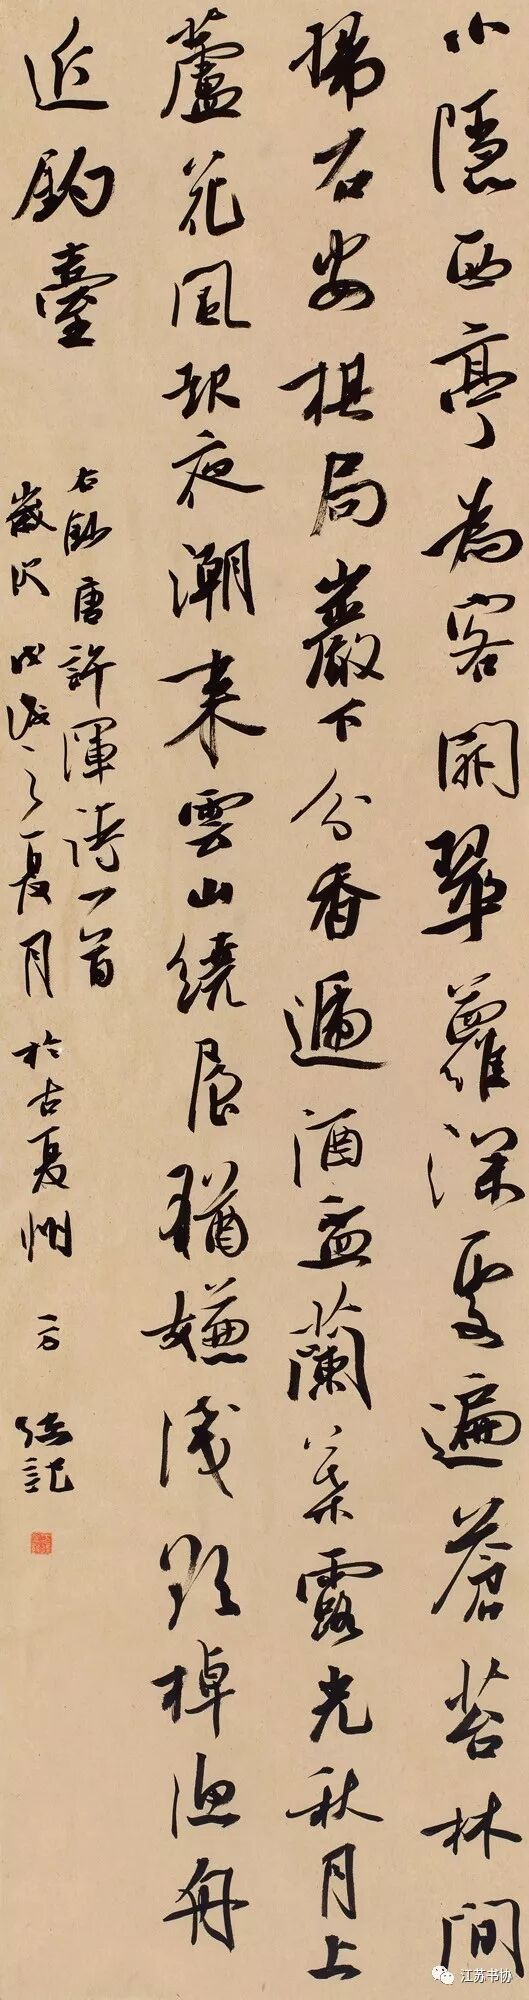 小隱西亭為客開翠蘿深處遍蒼苔林間
掃石安棋局巖下分香遞酒盃蘭葉露光秋月上
蘆花風起夜潮來雲山繞屋猶嫌淺欲棹漁舟
近釣臺
右錄唐許渾詩一首
歲次戊戌之夏月於古夏州
記
江苏书协